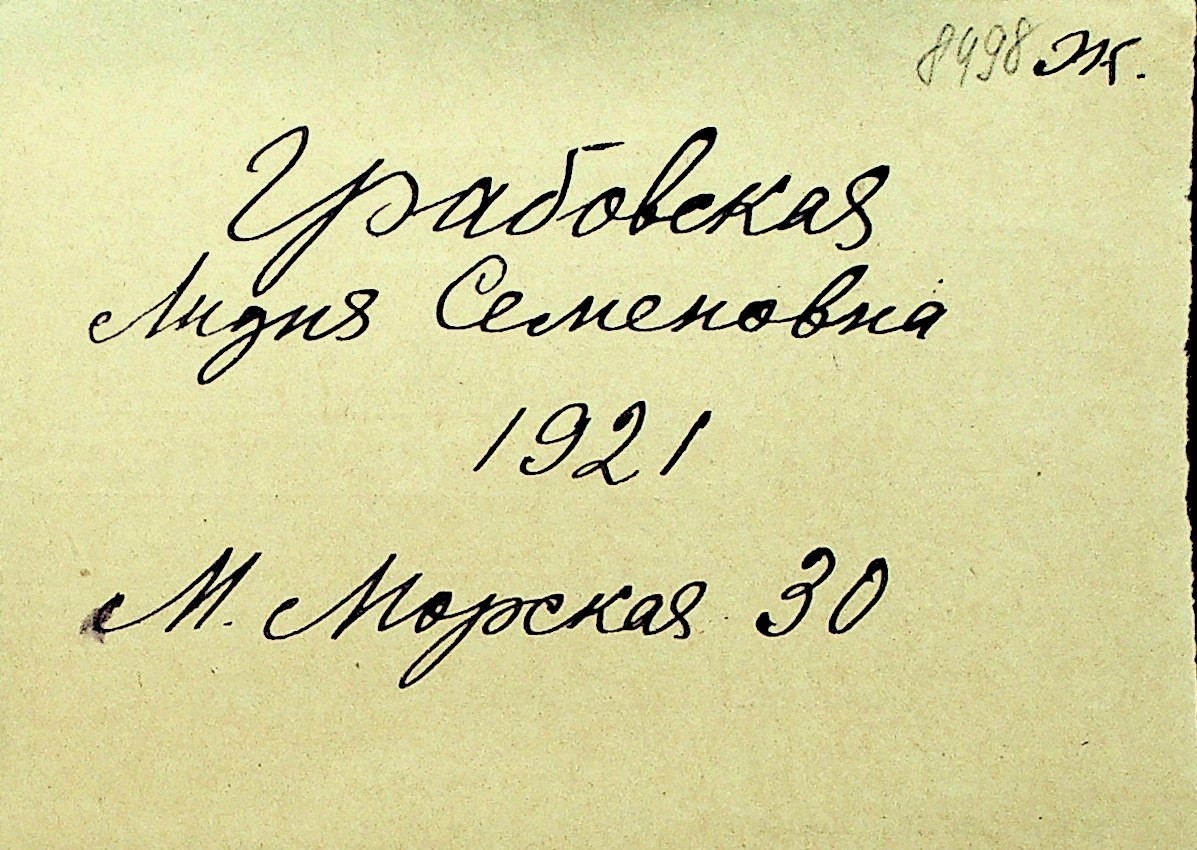 8498 Ж.
Грабовская
Лидия Семеновна
1921
М. Морская 30